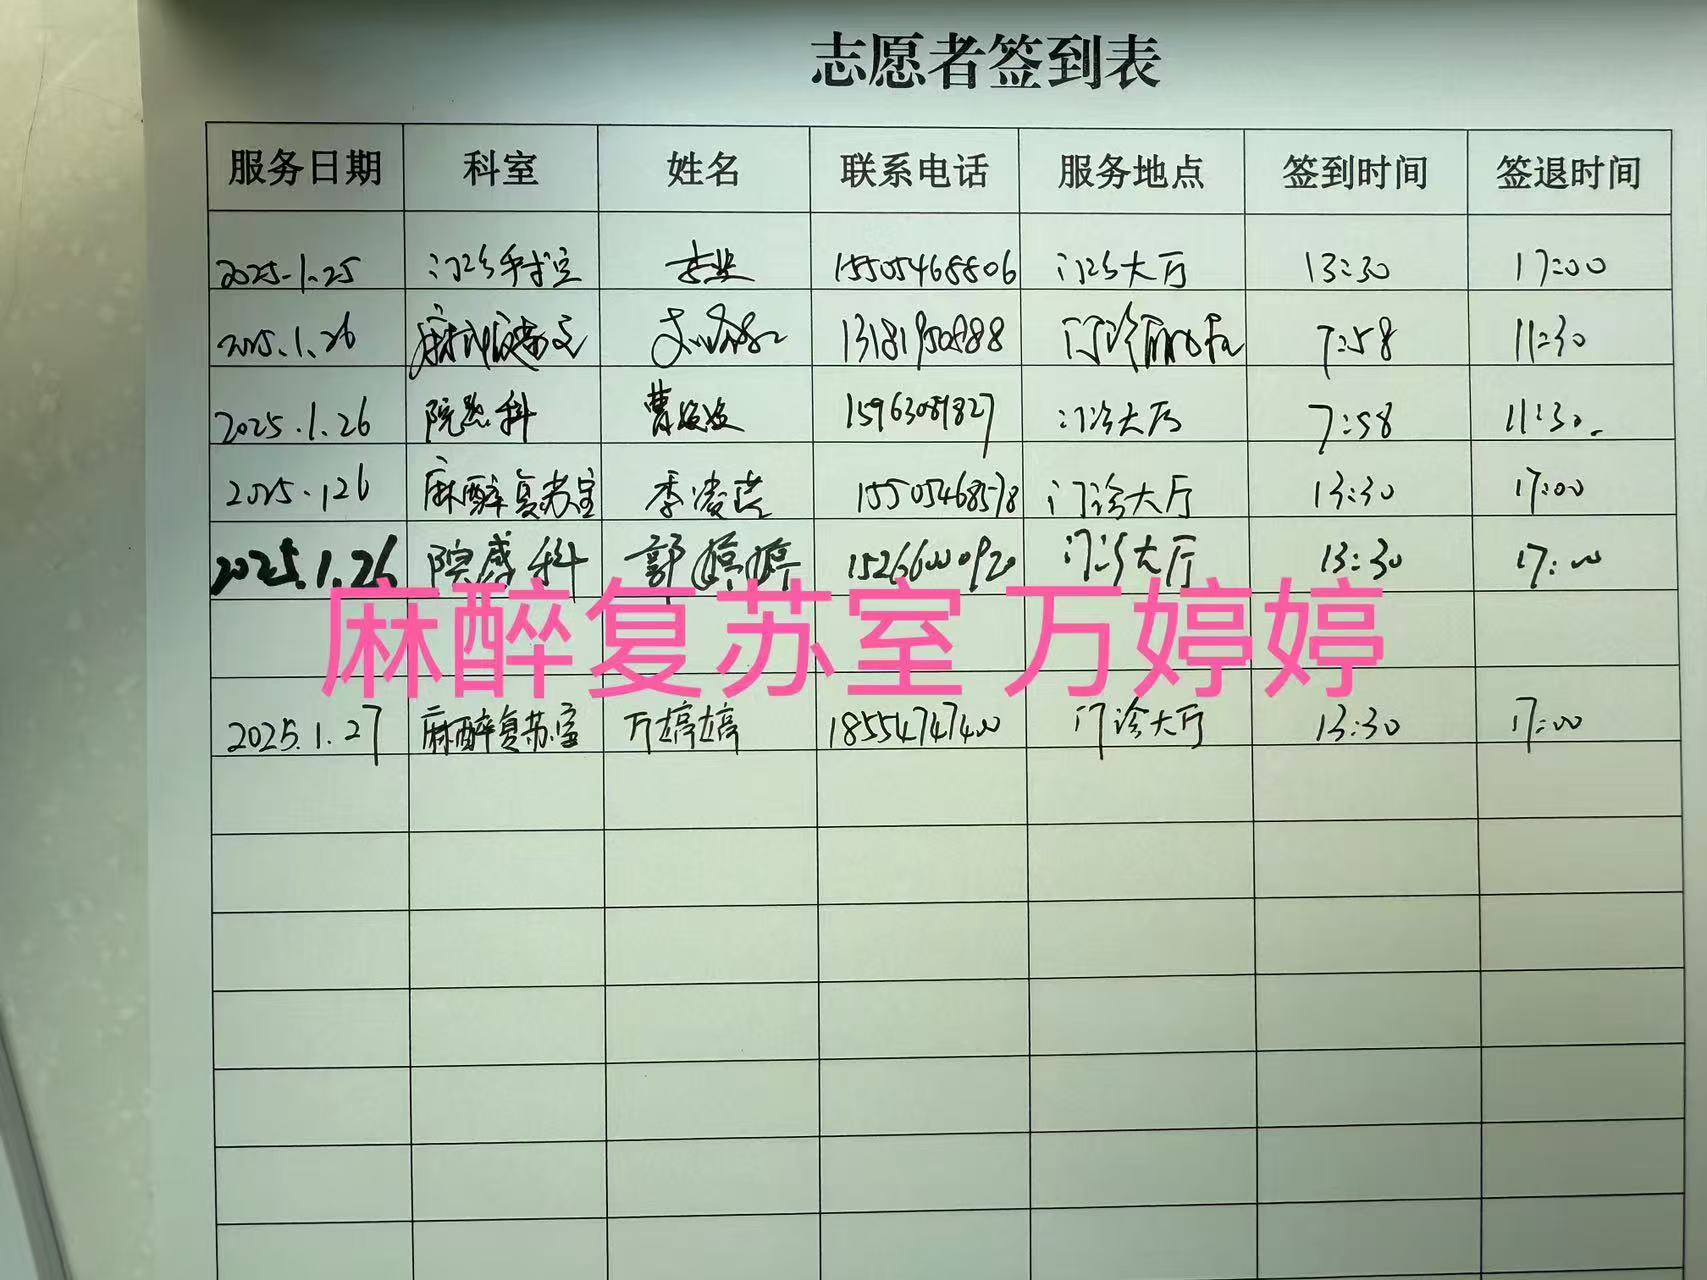 志愿者签到表
服务日期 科室 姓名 联系电话 服务地点 签到时间 签退时间
2025.1.25 门诊手术室 15505468806 门诊大厅 13:30 17:00
2025.1.26 7:58 11:30
2025.1.26 院感科 曹 15963089827 门诊大厅 7:58 11:30.
2025.126 麻醉复苏室 季凌 15505468578 门诊大厅 13:30 17:00
2025.1.26 院感科 郭婷婷 15266000920 门诊大厅 13:30 17:00
麻醉复苏室 万婷婷
2025.1.27 麻醉复苏室 万婷婷 18554747400 门诊大厅 13:30 17:00